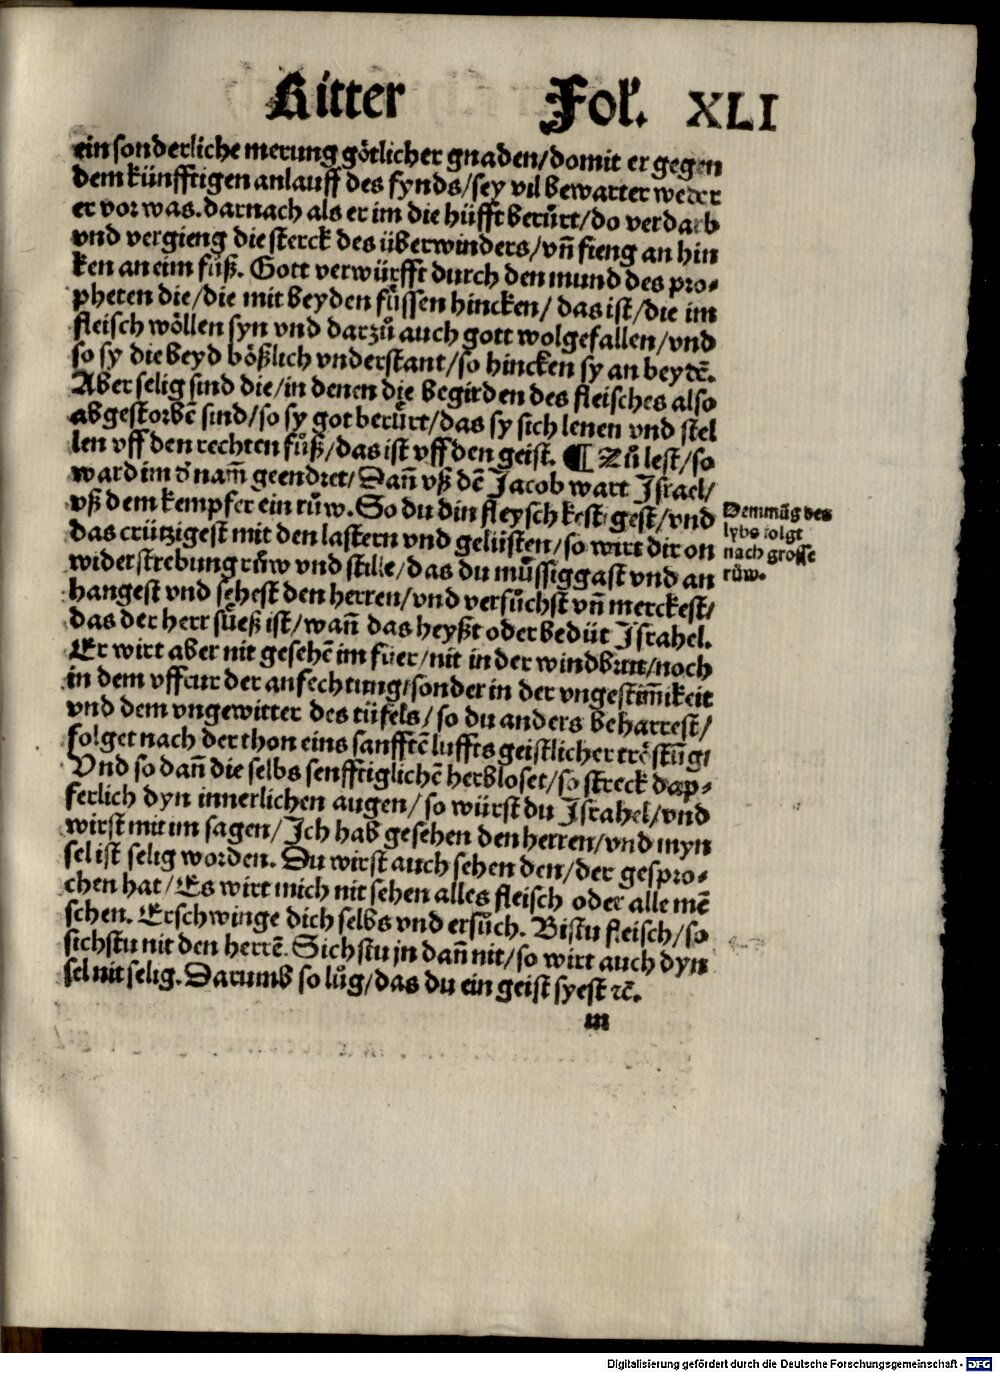 Ritter Fol. XLI
ein sonderliche merung gőtlicher gnaden/domit er gegen
dem künfftigen anlauff des fynds/sey vil bewarter weder
er vor was. darnach als er im die hüfft berůrt/do verdarb
vnd vergieng die sterck des überwinders/vñ fieng an hin
ken an eim fůß. Gott verwürfft durch den mund des pro⸗
pheten die/die mit beyden fůssen hincken/das ist/die im
fleisch wőllen syn vnd darzů auch gott wolgefallen/vnd
so sy die beyd bőßlich vnderstant/so hincken sy an beydē.
Aber selig sind die/in denen die begirden des fleisches also
abgestorbē sind/so sy got berůrt/das sy sich lenen vnd stel
len vff den rechten fůß/das ist vff den geist. ¶ Zů lest/so
ward im d̕ nam̃ geendret/Dañ vß dē Jacob wart Israel/
vß dem kempfer ein růw. So du din fleysch kestigest/vnd
das crützigest mit den lastern vnd gelüsten/so wirt dir on
widerstrebung růw vnd stille/das du můssiggast vnd an
hangest vnd sehest den herren/vnd versůchst vñ merckest/
das der herr sůeß ist/wañ das heyßt oder bedüt Israhel.
Er wirt aber nit gesehē im füer/nit in der windbrut/noch
in dem vffrur der anfechtung/sonder in der vngestim̃ikeit
vnd dem vngewitter des tüfels/so du anders beharrest/
folget nach der thon eins sanfftē luffts geistlicher trőstūg/
Vnd so dañ die selbs senfftiglichē herbloset/so streck dap⸗
ferlich dyn innerlichen augen/so würst du Israhel/vnd
wirst mit im sagen/Ich hab gesehen den herren/vnd myn
sel ist selig worden. Du wirst auch sehen den/der gespro⸗
chen hat/Es wirt mich nit sehen alles fleisch oder alle mē
schen. Erschwinge dich selbs vnd ersůch. Bistu fleisch/so
sichstu nit den herrē. Sichstu jn dañ nit/so wirt auch dyn
sel nit selig. Darumb so lůg/das du ein geist syest ꝛē.
Demmüg des
lybs folgt
nach grosse
růw.
m
Digitalisierung gefördert durch die Deutsche Forschungsgemeinschaft - DFG